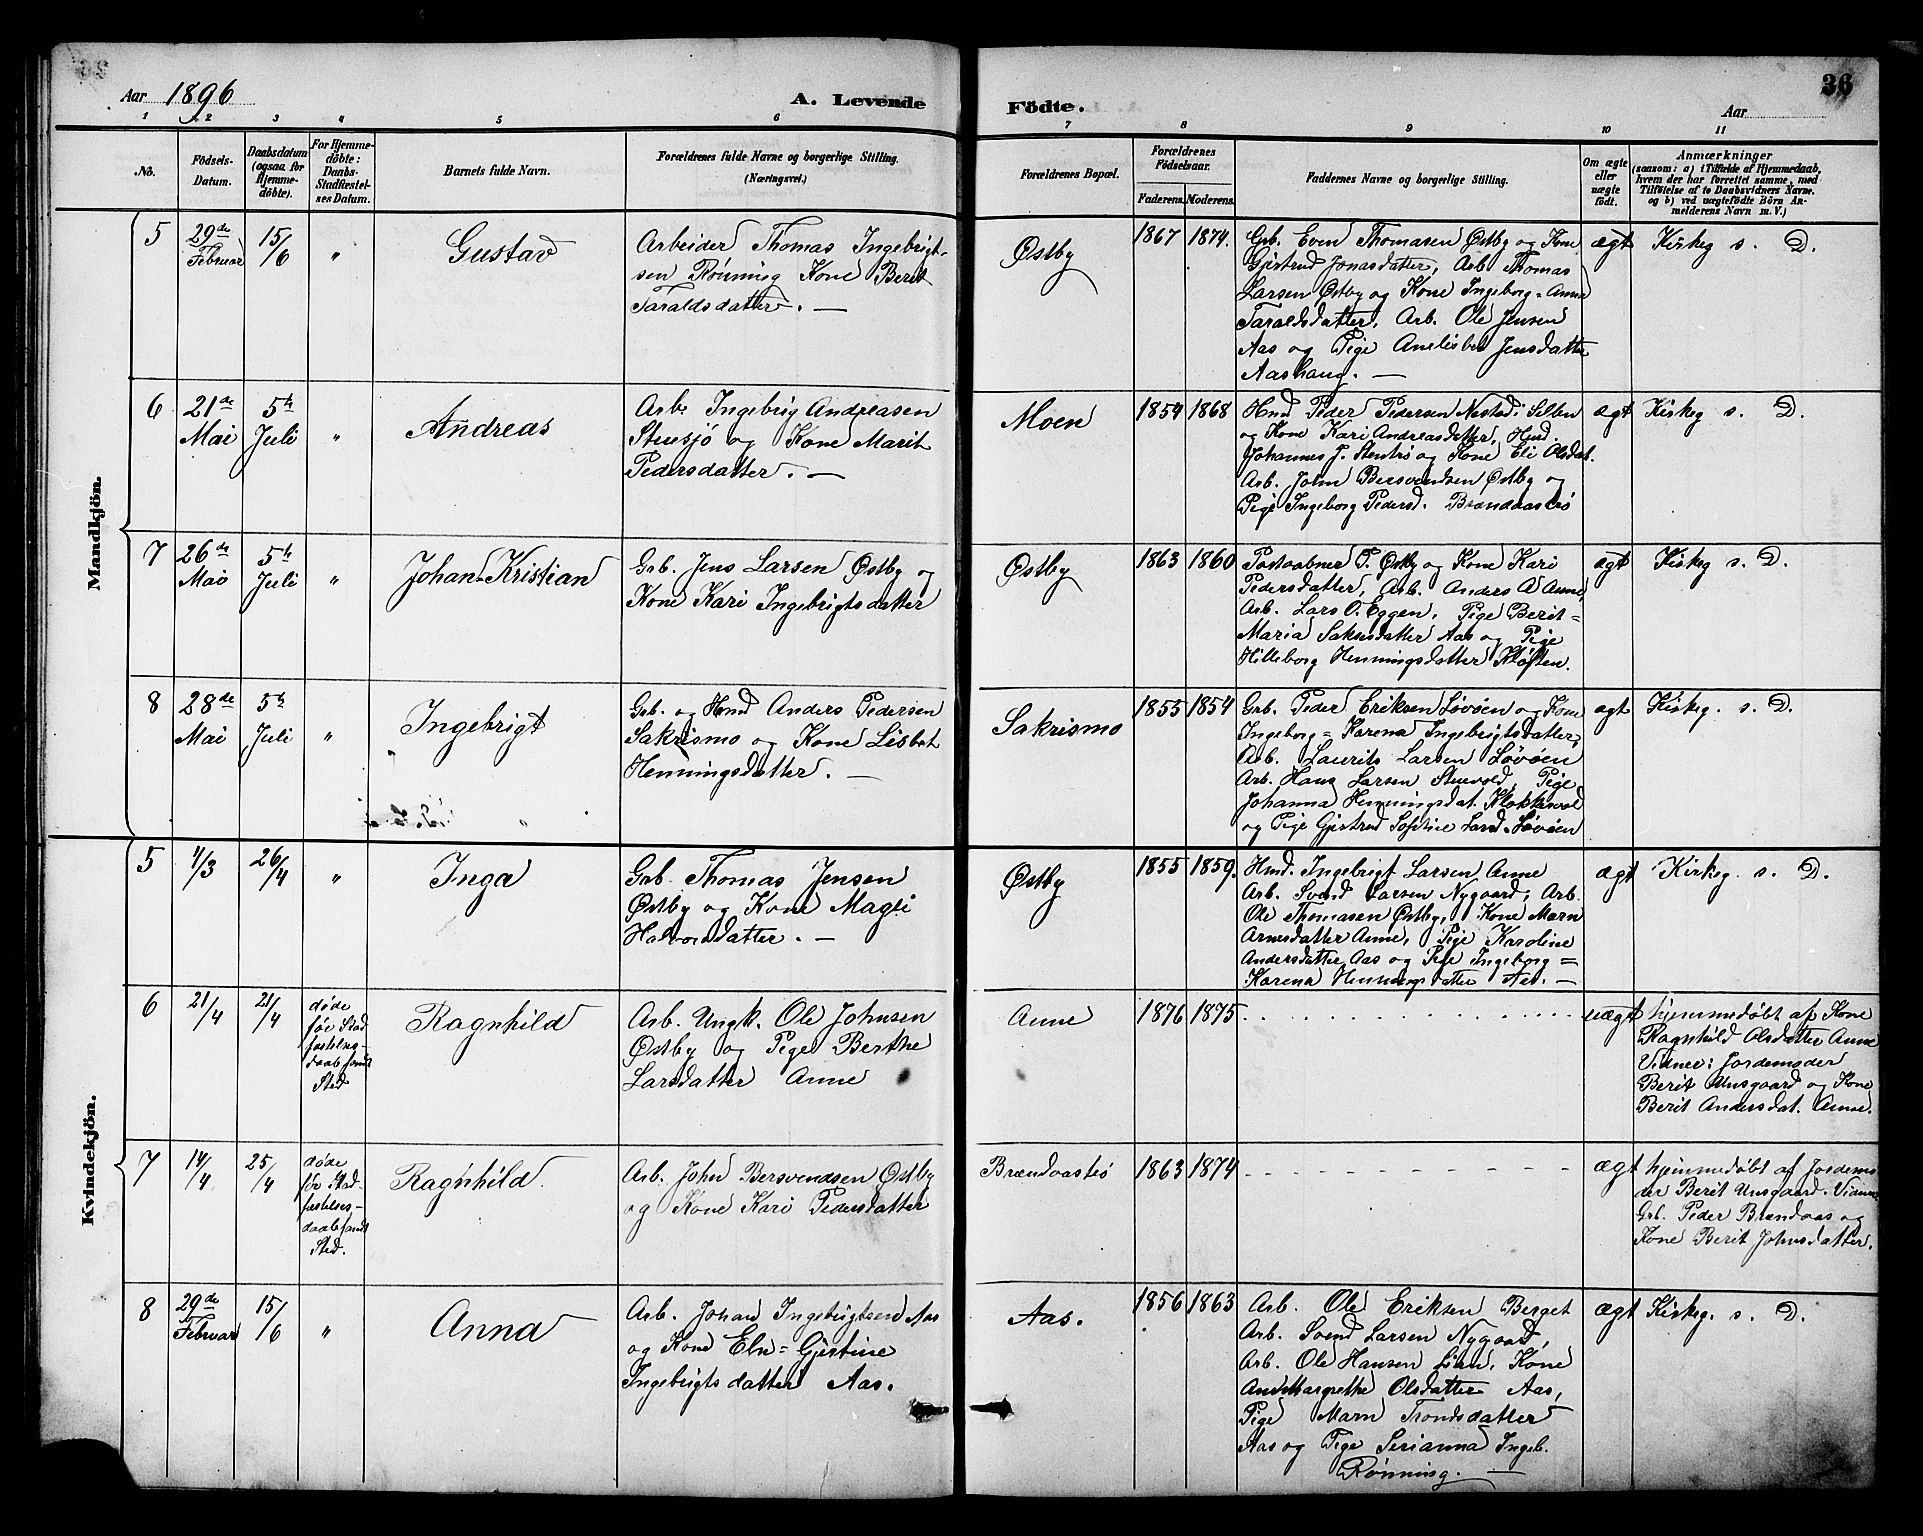 36
Aar 1896
A. Levende
Födte.
Aar
1 2 3 4 5 6 7 8 9 10 11
No.
Födsels-
Datum.
Daabsdatum
(ogsaa for
Hjemme-
döbte).
For Hjemme-
döbte:
Daabs-
Stadfæstel-
ses Datum.
Barnets fulde Navn.
Forældrenes fulde Navne og borgerlige Stilling.
(Næringsvei.)
Forældrenes Bopæl.
Forældrenes
Födselsaar.
Faderens. Moderens.
Faddernes Navne og borgerlige Stilling.
Om ægte
eller
uægte
födt.
Anmærkninger
(saasom: a) i Tilfælde af Hjemmedaab,
hvem der har forrettet samme, med
Tilföielse af to Daabsvidners Navne.
og b) ved uægtefödte Börn An-
melderens Navn m. V.)
Mandkjön.
5
29de
Februar
15/6
"
Gustav
Arbeider Thomas Ingebrigt-
sen Rönning Kone Berit
Taraldsdatter. —
Østby
1867 1874.
Grb. Even Thomasen Østby og Kone
Gjertrud Jonasdatter, Arb Thomas
Larsen Østby og Kone Ingeborg=Anna
Taraldsdatter, Arb. Ole Jensen
Aas og Pige Anelisbet Jensdatter
Aashaug. —
ægt
Kirkeg s. D.
6
21de
Mai
5te
Juli
"
Andreas
Arb. Ingebrig Andreasen
Stensjö og Kone Marit
Pedersdatter. —
Moen
1854 1868
Hmd Peder Pedersen Nestad i Selbu
og Kone Kari Andreasdatter, Hmd.
Johannes J. Stentrö og Kone Eli Olsdat.
Arb. John Bersvendsen Østby og
Pige Ingeborg Pedersd. Brændaaströ
ægt
Kirkeg s. D.
7
26de
Mai
5te
Juli
"
Johan-Kristian
Grb. Jens Larsen Østby og
Kone Kari Ingebrigtsdatter
Østby
1863 1860
Postaabner T. Østby og Kone Kari
Pedersdatter, Arb. Anders A Aune,
Arb. Lars O. Eggen, Pige Berit=
Maria Saksesdatter Aas og Pige
Hilleborg Henningsdatter Kløften.
ægt
Kirkeg s. D.
8
28de
Mai
5te
Juli
"
Ingebrigt
Grb. og Hmd Anders Pedersen
Sakrismo og Kone Lisbet
Henningsdatter. —
Sakrismo
1855 1854
Grb. Peder Eriksen Løvöen og Kone
Ingeborg=Karena Ingebrigtsdatter,
Arb. Laurits Larsen Løvöen
Arb. Hans Larsen Stuevold, Pige
Johanna Henningsdat. Klokkervold
og Pige Gjertrud Sofiine Larsd. Løvöen
ægt
Kirkeg. s. D.
Kvindekjön.
5
4/3
26/4
"
Inga
Grb. Thomas Jensen
Østby og Kone Magli
Halvorsdatter. —
Østby
1855 1859.
Hmd. Ingebrigt Larsen Aune
Arb. Svend Larsen Nygaard, Arb.
Ole Thomasen Østby, Kone Marn
Arnesdatter Aune, Pige Karoline
Andersdatter Aas og Pige Ingeborg=
Karena Henningsdatter Aas. —
ægt
Kirkeg. s. D.
6
21/4
21/4
døde
før Stad
fæstelses-
daab fandt
Sted
Ragnhild
Arb. Ungk. Ole Johnsen
Østby og Pige Berthe
Larsdatter Aune
Aune
1876 1875
uægt
hjemmedöbt af Kone
Ragnhild Olsdatter Aune
Vidner: Jordemoder
Berit Unsgaard og Kone
Berit Andersdat. Aune.
7
14/4
25/4
døde
før Stad-
fæstelses-
daab fandt
Sted.
Ragnhild.
Arb. John Bersvendsen Østby
og Kone Kari Pedersdatter
Brændaaströ
1863 1874
ægt
hjemmedöbt af Jordemo-
der Berit Unsgaard. Vidner
Grb. Peder Brændaas og
Kone Berit Johnsdatter.
8
29de
Februar
15/6
"
Anna
Arb. Johan Ingebrigtsen Aas
og Kone Elen=Gjertine
Ingebrigtsdatter Aas.
Aas.
1856 1863
Arb. Ole Eriksen Berget
Arb. Svend Larsen Nygaard,
Arb. Ole Hansen Lian, Kone
Ane Margrethe Olsdatter Aas,
Pige Marn Trondsdatter
Aas og Pige Serianna Ingeb.
Rönning. —
ægt
Kirkeg. s. D.